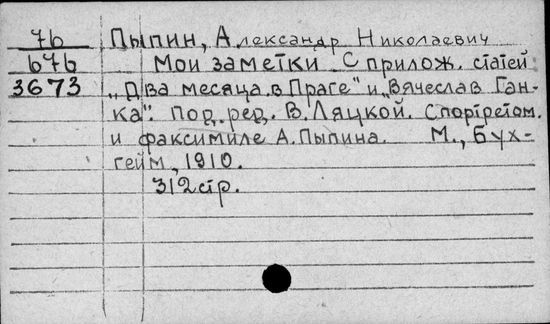 7б Пыпин, Александр Николаевич
б7б Мои заметки С прилож. статей
3673 „Два месяца в Праге" и „Вячеслав Ган-
ка". Под. ред. В. Ляцкой. С портретом.
и факсимиле А. Пыпина. М., Бух-
гейм, 1910.
312 стр.